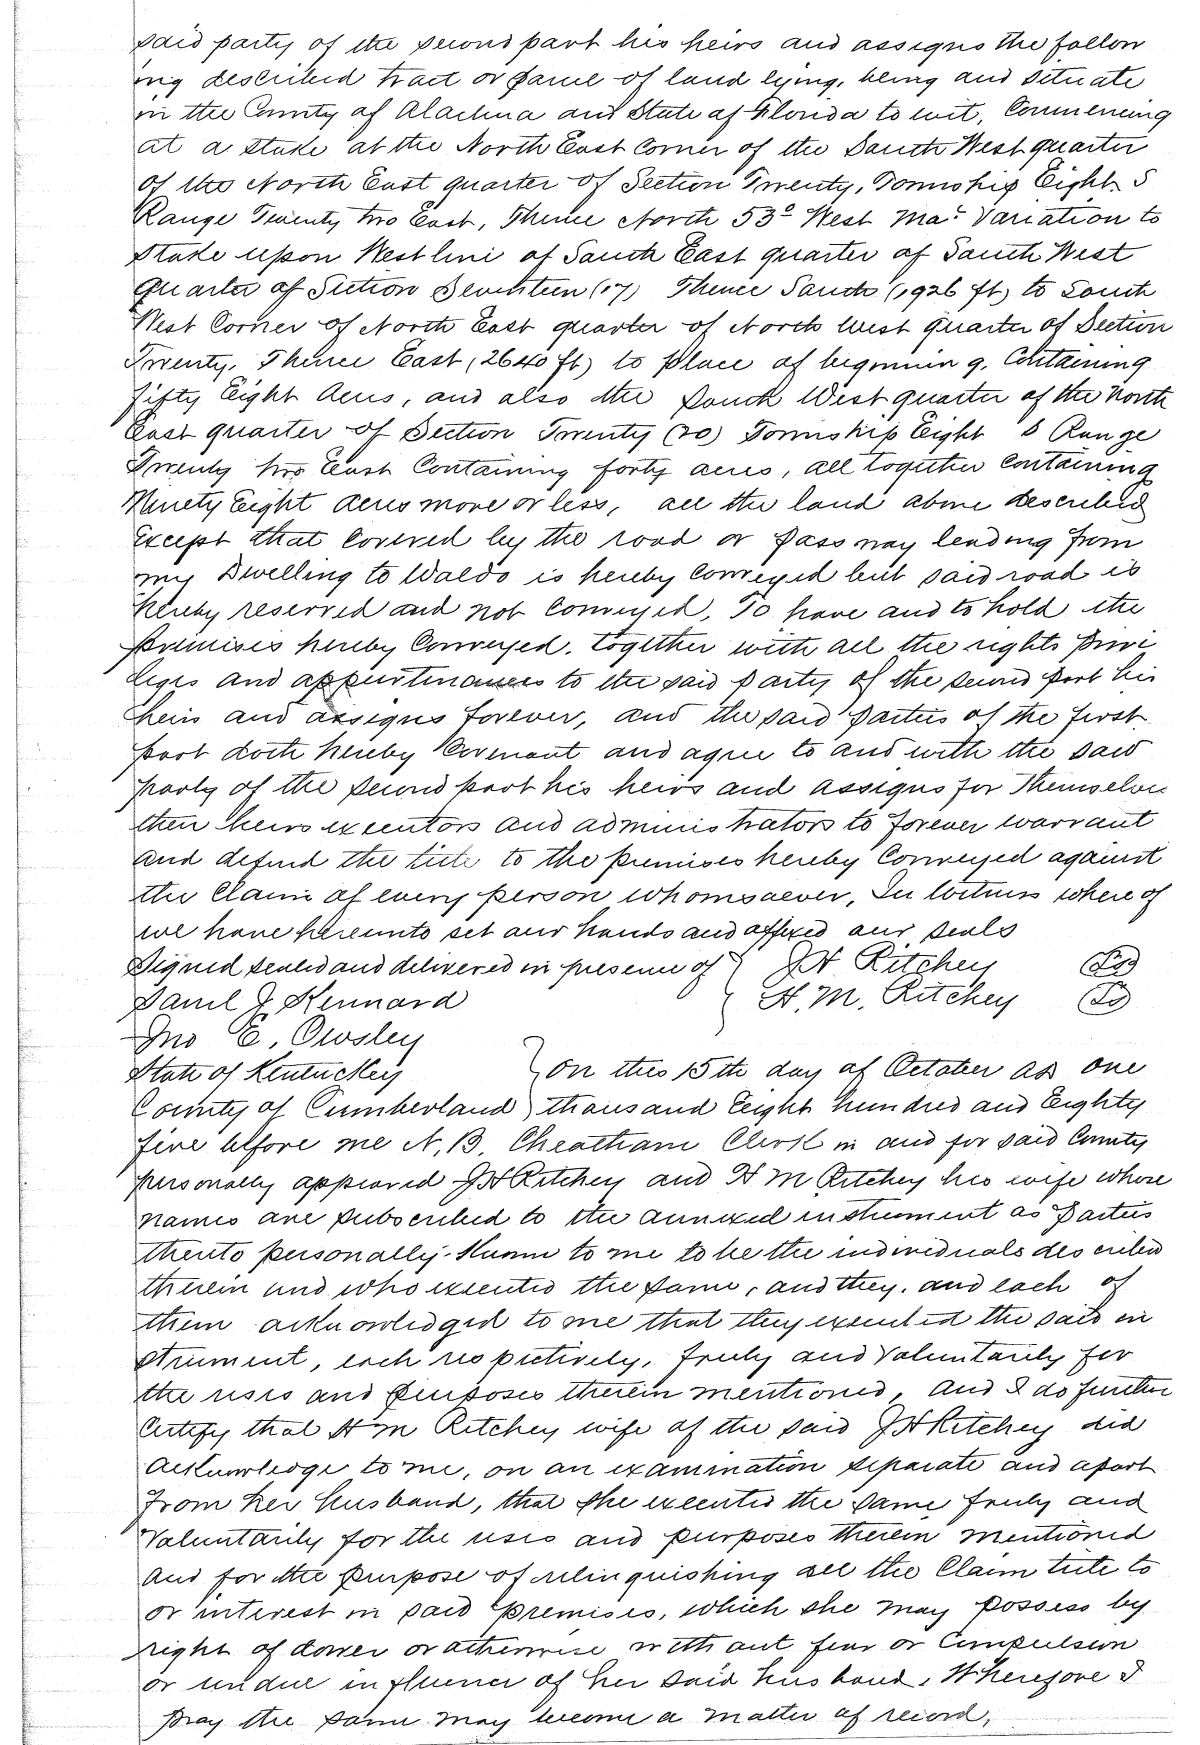 said party of the second part his heirs and assigns the follow
ing described tract or parcel of land lying, being and situate
in the County of Alachua and State of Florida to wit, Commencing
at a stake at the North East Corner of the South West quarter
of the North East quarter of Section Twenty, Township Eight S
Range Twenty two East, Thence North 53° West Mag Variation to
stake upon West line of South East quarter of South West
quarter of Section Seventeen (17) Thence South (1926 ft) to South
West Corner of North East quarter of North West quarter of Section
Twenty, Thence East, (2640 ft) to place of beginning. Containing
fifty Eight Acres, and also the South West quarter of the North
East quarter of Section Twenty (20) Township Eight S Range
Twenty two East Containing forty acres, all together containing
Ninety Eight Acres more or less, all the land above described
Except that Covered by the road or passway leading from
my Dwelling to Waldo is hereby Conveyed but said road is
hereby reserved and not Conveyed, To have and to hold the
premises hereby Conveyed. together with all the rights privi
leges and appurtinances to the said party of the second part his
heirs and assigns forever, and the said parties of the first
part doth hereby Covenant and agree to and with the said
party of the second part his heirs and assigns for Themselves
their heirs executors and administrators to forever warrant
and defend the title to the premises hereby Conveyed against
the Claim of every person whomsoever, In Witness where of
we have hereunto set our hands and affixed our seals
Signed sealed and delivered in presence of } J H Ritchey
Saml J. Kennard H. M. Ritchey
Jno E. Owsley
State of Kentuckey } On this 15th day of October AD one
County of Cumberland } thousand Eight hundred and Eighty
five before me N. B. Cheatham Clerk in and for said County
personally appeared J H Ritchey and H M Ritchey his wife whose
names are subscribed to the annexed instrument as parties
thereto personally known to me to be the individuals described
therein and who executed the same, and they. and each of
them acknowledged to me that they executed the said in
strument, each respectively, freely and Voluntarily for
the uses and purposes therein mentioned, And I do further
Certify that H M Ritchey wife of the said J H Ritchey did
acknowledge to me, on an examination separate and apart
from her husband, that she executed the same freely and
Voluntarily for the uses and purposes therein mentioned
And for the purpose of relinquishing all the Claim title to
or interest in said premises, which she may possess by
right of dower or otherwise without fear or Compulsion
or undue influence of her said husband, Wherefore I
pray the same may become a matter of record,